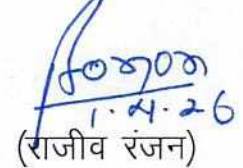 1.4.26
(राजीव रंजन)